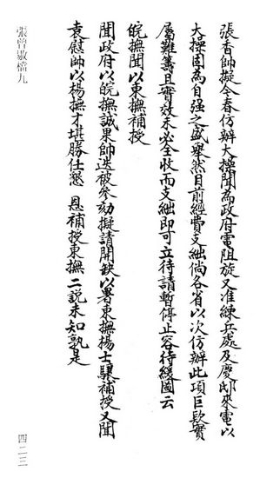 張香帥擬今春仿辦大操聞為政府電阻旋又准練兵處及慶邸來電以
大操固為自强之盛舉然目前經費支絀倘各省以次仿辦此項巨款實
屬難籌且實效未必全收而支絀即可立待請暫停止容待緩圖云
皖撫聞以東撫補授
聞政府以皖撫誠果帥迭被參劾擬請開缺以署東撫楊士驤補授又聞
袁慰帥以楊撫才堪勝任懇 恩補授東撫二說未知孰是
張曾敭檔九
四二三